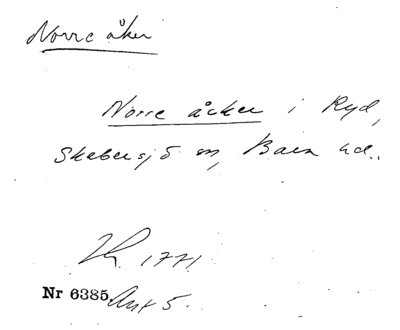 Norre åker
Norre åcker i Ryd,
Skabersjö sn, Bara hd.
1771.
Nr 6385. Akt 5.